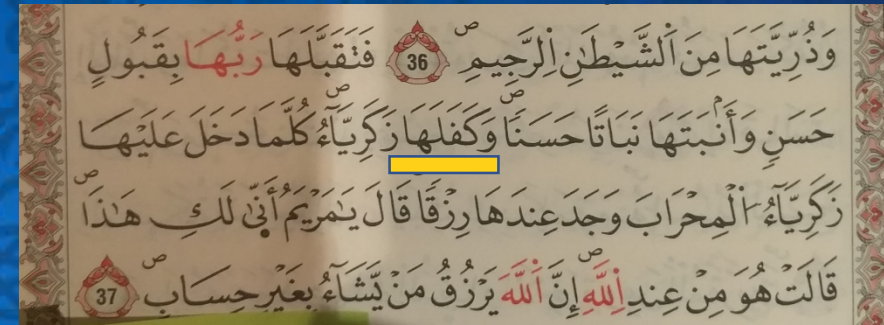 وَذُرِّيَّتَهَا مِنَ اَ۬لشَّيْطَٰنِ اِ۬لرَّجِيمِۖ 36 فَتَقَبَّلَهَا رَبُّهَا بِقَبُولٍ
حَسَنٖ وَأَنۢبَتَهَا نَبَاتاً حَسَناٗۖ وَكَفَلَهَا زَكَرِيَّآءُۖ كُلَّمَا دَخَلَ عَلَيْهَا
زَكَرِيَّآءُ اُ۬لْمِحْرَابَ وَجَدَ عِندَهَا رِزْقاٗ قَالَ يَٰمَرْيَمُ أَنّ۪ىٰ لَكِ هَٰذَاۖ
قَالَتْ هُوَ مِنْ عِندِ اِ۬للَّهِۖ إِنَّ اَ۬للَّهَ يَرْزُقُ مَنْ يَّشَآءُ بِغَيْرِ حِسَابٍۖ 37